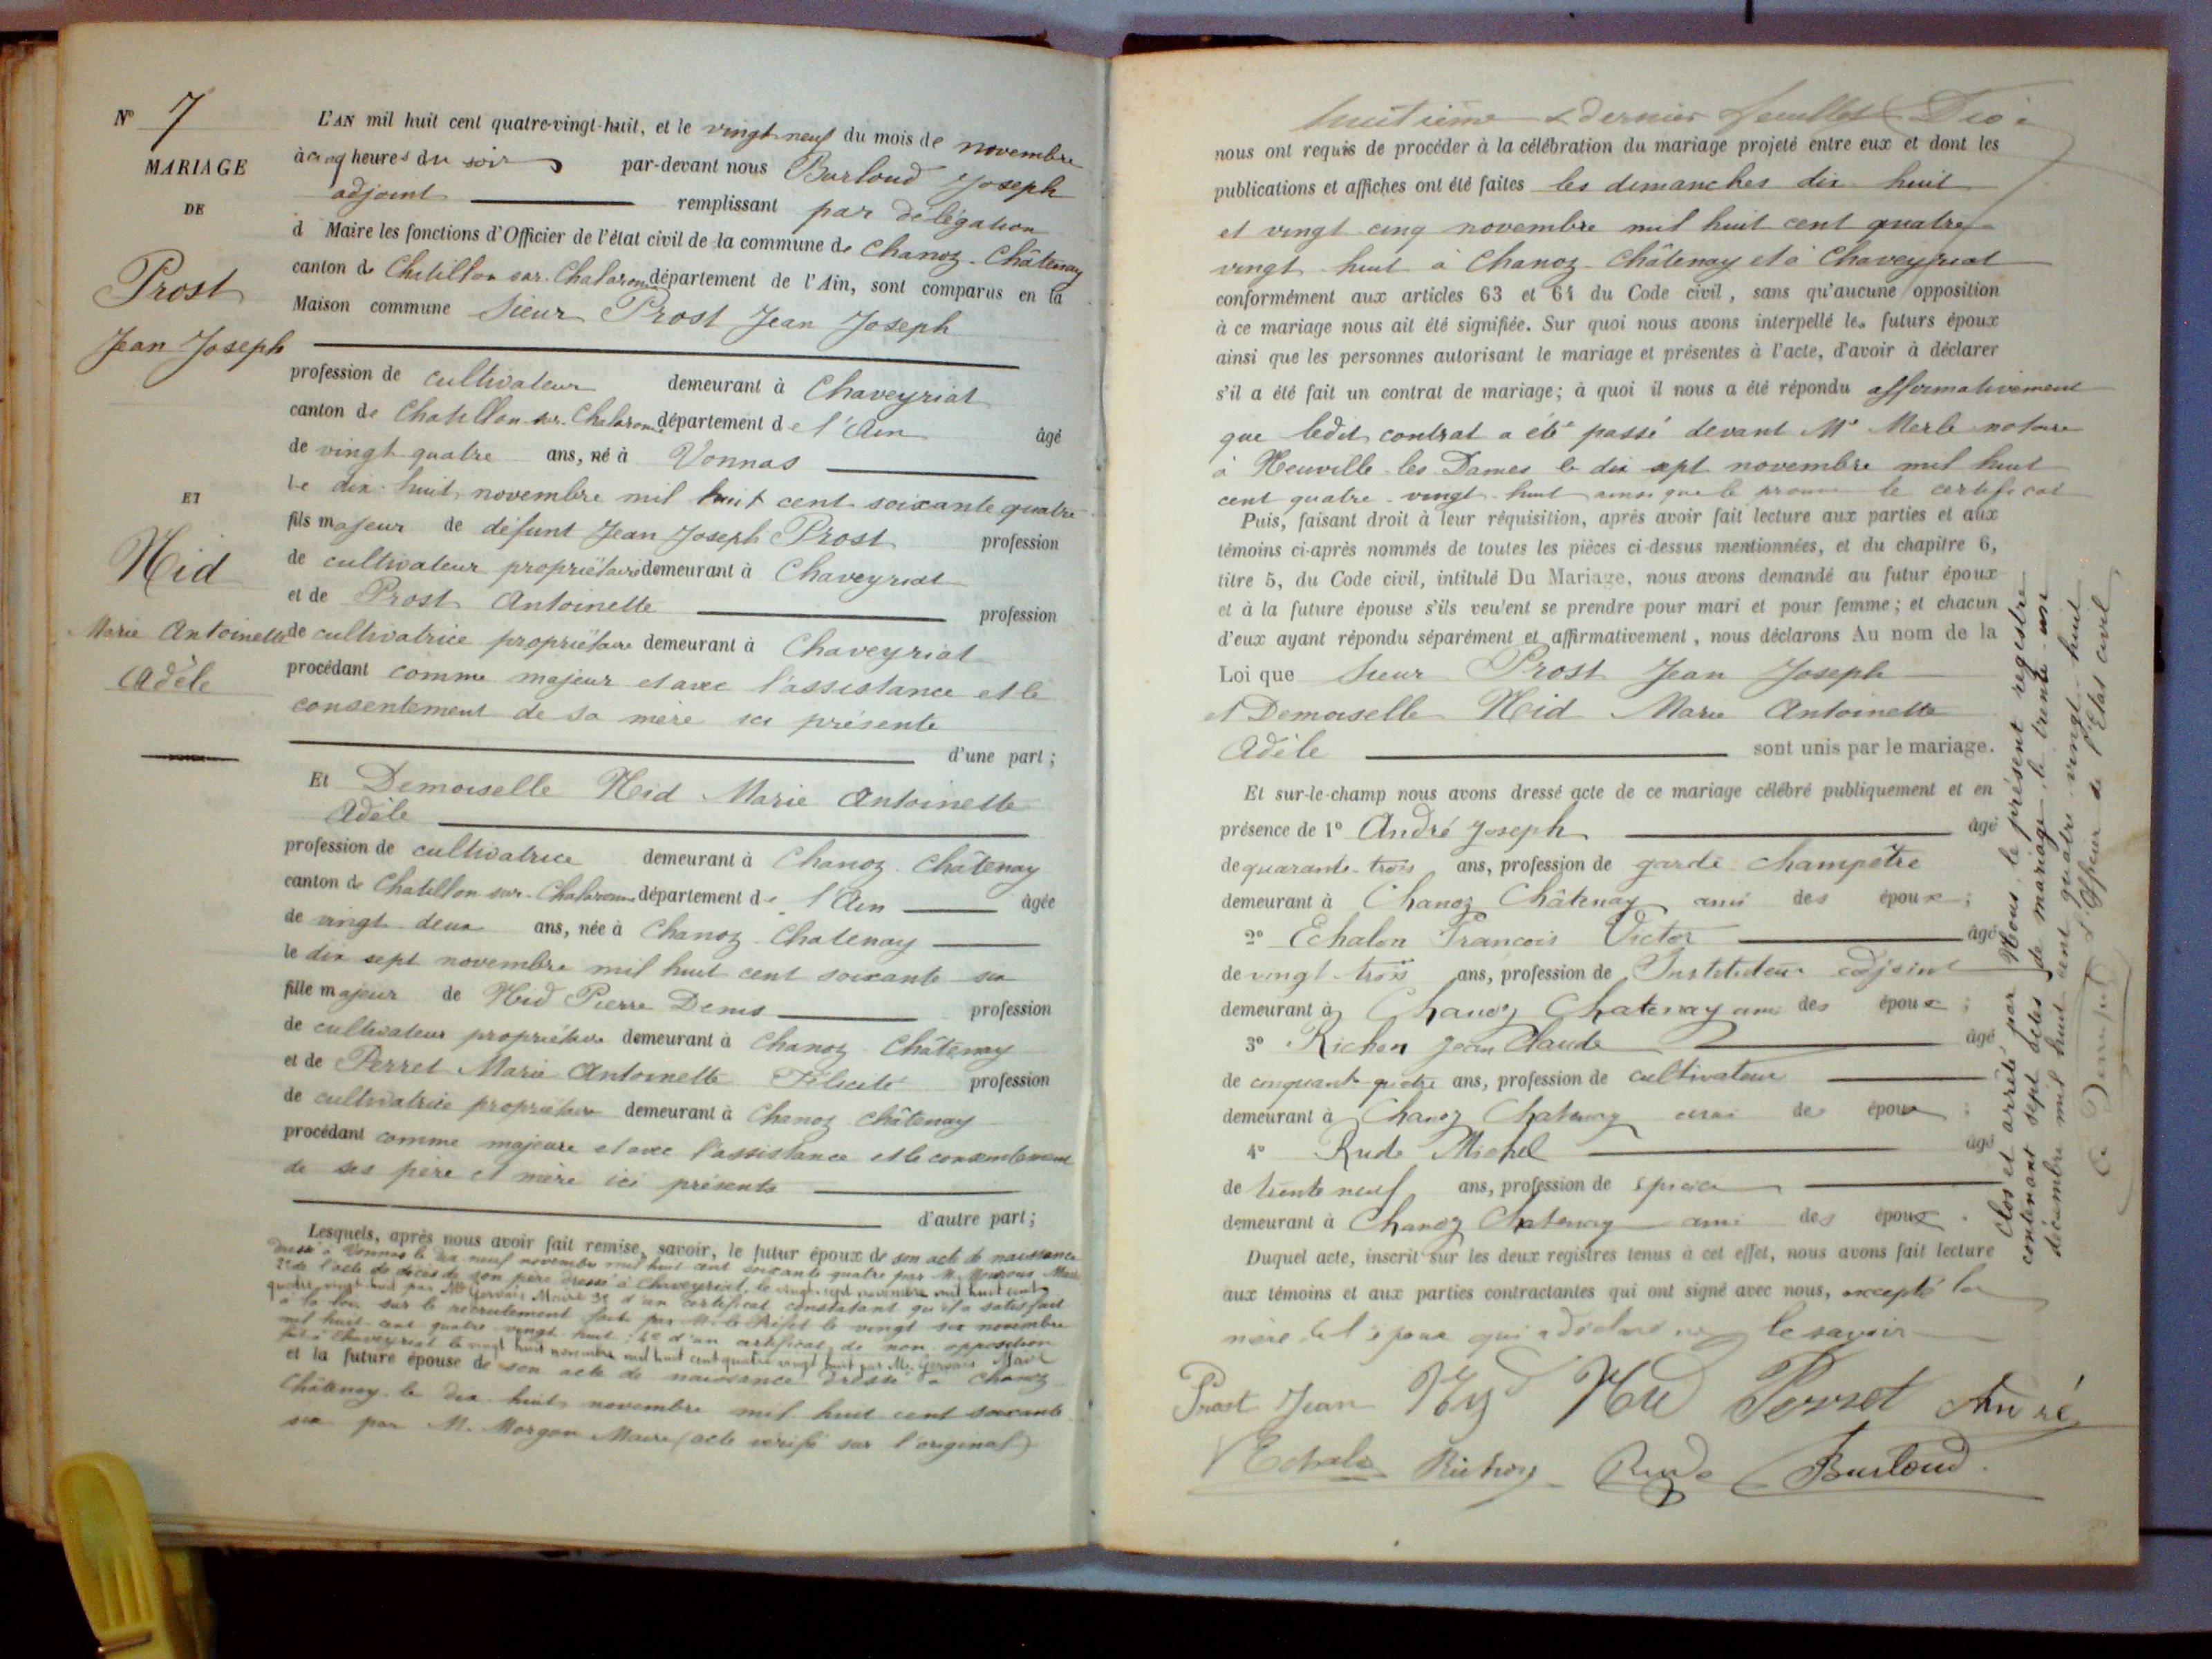 N° 7
MARIAGE
DE
Prost
Jean Joseph
ET
Nid
Marie Antoinette
Adèle
L'AN mil huit cent quatre-vingt-huit, et le vingt neuf du mois de novembre
à cinq heures du soir par-devant nous Burloud Joseph
adjoint remplissant par délégation
d Maire les fonctions d'Officier de l'état civil de la commune de Chanoz-Châtenay
canton de Chatillon sur Chalaronne département de l'Ain, sont comparus en la
Maison commune Sieur Prost Jean Joseph
profession de cultivateur demeurant à Chaveyriat
canton de Chatillon sur Chalaronne département de l'Ain âgé
de vingt quatre ans, né à Vonnas
le dix-huit novembre mil huit cent soixante quatre
fils majeur de défunt Jean Joseph Prost profession
de cultivateur propriétaire demeurant à Chaveyriat
et de Prost Antoinette profession
de cultivatrice propriétaire demeurant à Chaveyriat
procédant comme majeur et avec l'assistance et le
consentement de sa mère ici présente
d'une part ;
Et Demoiselle Nid Marie Antoinette
Adèle
profession de cultivatrice demeurant à Chanoz Châtenay
canton de Chatillon sur Chalaronne département de l'Ain âgée
de vingt deux ans, née à Chanoz Chatenay
le dix sept novembre mil huit cent soixante six
fille majeur de Nid Pierre Denis profession
de cultivateur propriétaire demeurant à Chanoz Châtenay
et de Perret Marie Antoinette Félicité profession
de cultivatrice propriétaire demeurant à Chanoz Châtenay
procédant comme majeure et avec l'assistance et le consentement
de ses père et mère ici présents
d'autre part ;
Lesquels, après nous avoir fait remise, savoir, le futur époux de son acte de naissance
dressé à Vonnas le dix neuf novembre mil huit cent soixante quatre par M. Maire
2° de l'acte de décès de son père dressé à Chaveyriat, le vingt sept novembre mil huit cent
quatre vingt huit par Mr Gervais Maire 3° d'un certificat constatant qu'il a satisfait
à la loi sur le recrutement fait par M. le Préfet le vingt six novembre
mil huit cent quatre vingt huit ; 4° d'un certificat de non opposition
fait à Chaveyriat le vingt huit novembre mil huit cent quatre vingt huit par Mr. Gervais Maire
et la future épouse de son acte de naissance dressé à Chanoz
Châtenay le dix huit novembre mil huit cent soixante
six par M. Morgon Maire (acte vérifié sur l'original)
huitième & dernier feuillet
nous ont requis de procéder à la célébration du mariage projeté entre eux et dont les
publications et affiches ont été faites les dimanches dix huit
et vingt cinq novembre mil huit cent quatre
vingt huit à Chanoz-Châtenay et à Chaveyriat
conformément aux articles 63 et 64 du Code civil, sans qu'aucune opposition
à ce mariage nous ait été signifiée. Sur quoi nous avons interpellé les futurs époux
ainsi que les personnes autorisant le mariage et présentes à l'acte, d'avoir à déclarer
s'il a été fait un contrat de mariage ; à quoi il nous a été répondu affirmativement
que ledit contrat a été passé devant Me Merle notaire
à Neuville-les-Dames le dix sept novembre mil huit
cent quatre-vingt-huit ainsi que le prouve le certificat
Puis, faisant droit à leur réquisition, après avoir fait lecture aux parties et aux
témoins ci-après nommés de toutes les pièces ci-dessus mentionnées, et du chapitre 6,
titre 5, du Code civil, intitulé Du Mariage, nous avons demandé au futur époux
et à la future épouse s'ils veulent se prendre pour mari et pour femme ; et chacun
d'eux ayant répondu séparément et affirmativement, nous déclarons Au nom de la
Loi que Sieur Prost Jean Joseph
et Demoiselle Nid Marie Antoinette
Adèle sont unis par le mariage.
Et sur-le-champ nous avons dressé acte de ce mariage célébré publiquement et en
présence de 1° André Joseph âgé
de quarante-trois ans, profession de garde champêtre
demeurant à Chanoz Châtenay ami des époux ;
2° Echalon François Victor âgé
de vingt-trois ans, profession de Instituteur adjoint
demeurant à Chanoz Chatenay ami des époux ;
3° Richon Jean Claude âgé
de cinquante-quatre ans, profession de cultivateur
demeurant à Chanoz Chatenay ami des époux ;
4° Rude Michel âgé
de trente neuf ans, profession de épicier
demeurant à Chanoz Chatenay ami des époux .
Duquel acte, inscrit sur les deux registres tenus à cet effet, nous avons fait lecture
aux témoins et aux parties contractantes qui ont signé avec nous, excepté la
mère de l'époux qui a déclaré ne le savoir
Prost Jean Nyd Nid Perret André
Echalon Richon Rude Burloud
Clos et arrêté par Nous, le présent registre
contenant sept actes de mariage, le trente-un
décembre mil huit cent quatre vingt huit
L'Officier de l'Etat civil